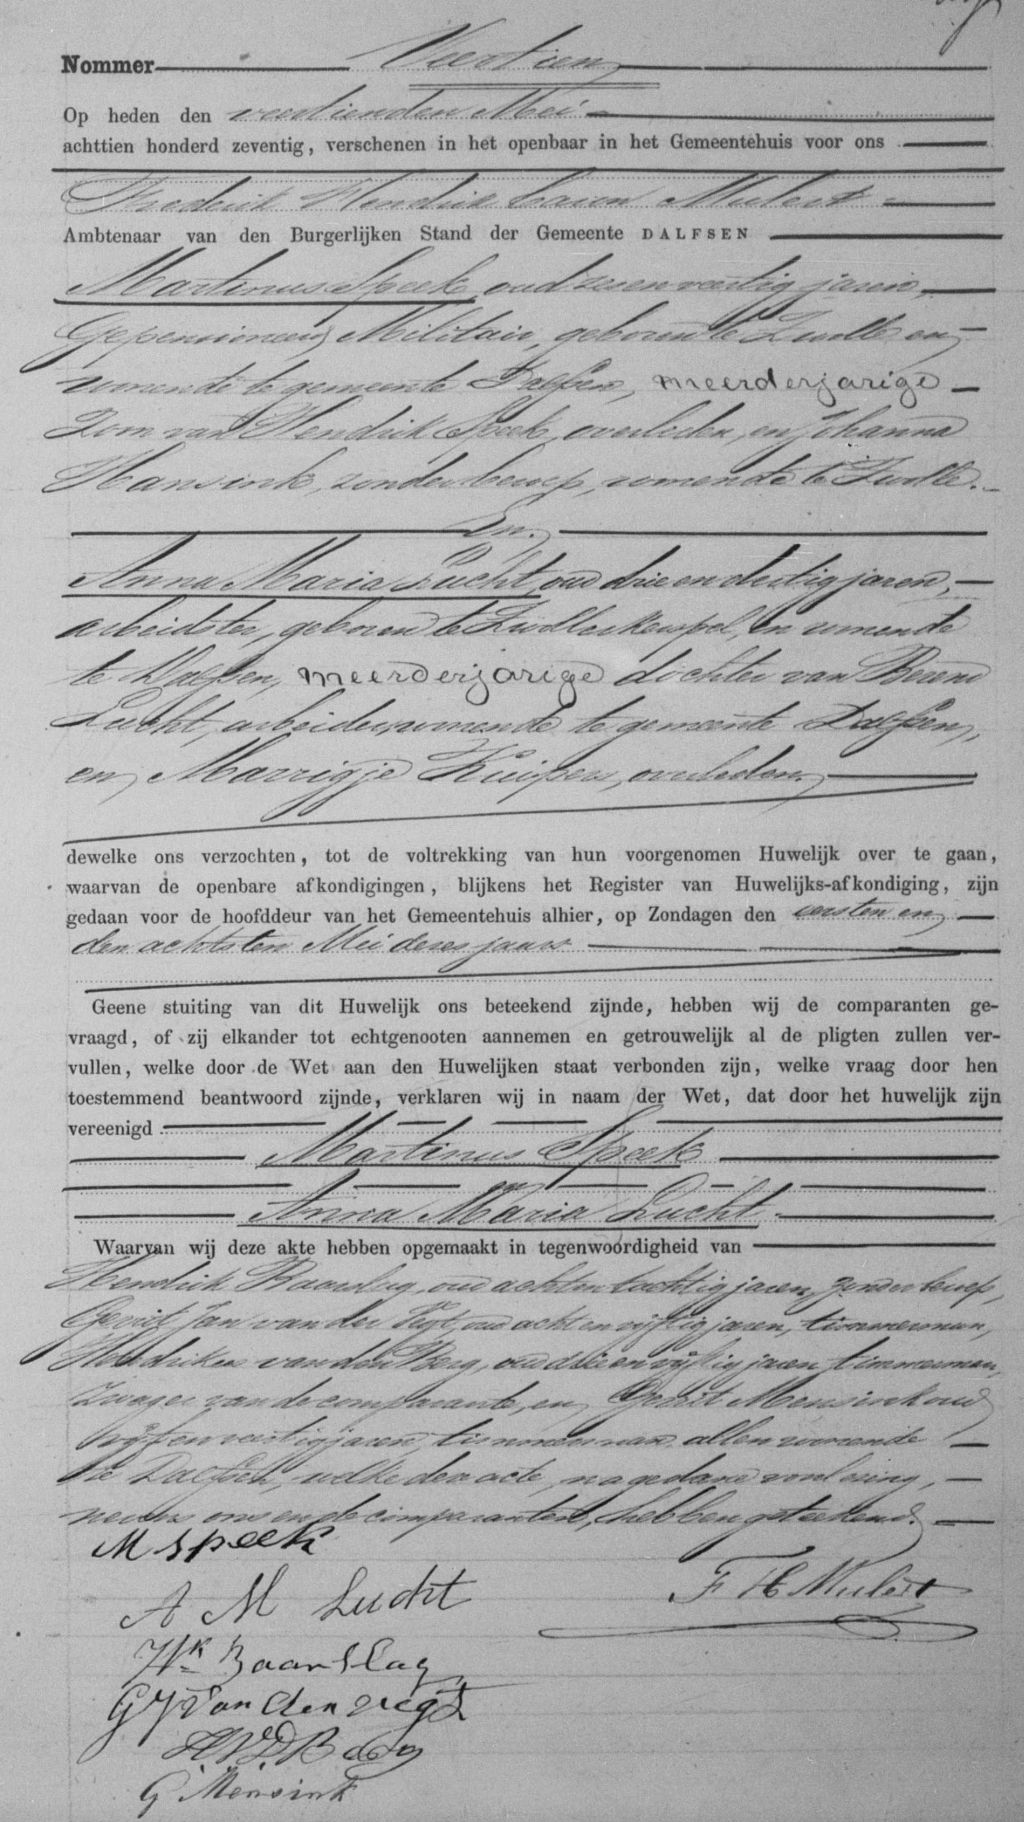 Nommer Veertien
Op heden den veertienden Mei
achttien honderd zeventig, verschenen in het openbaar in het Gemeentehuis voor ons
Frederik Hendrik baron Mulert
Ambtenaar van den Burgerlijken Stand der Gemeente DALFSEN
Martinus Speek, oud zeven veertig jaren,
Gepensioneerd Militair, geboren te Zwolle en
wonende te gemeente Dalfsen, meerderjarige
Zoon van Hendrik Speek, overleden, en Johanna
Hansink, zonder beroep, wonende te Zwolle.
En.
Anna Maria Lucht, oud drie en dertig jaren,
arbeidster, geboren te Zwollerkerspel, en wonende
te Dalfsen, meerderjarige dochter van Berend
Lucht, arbeider, wonende te gemeente Dalfsen,
en Marrigje Kuipers, overleden.
dewelke ons verzochten, tot de voltrekking van hun voorgenomen Huwelijk over te gaan,
waarvan de openbare afkondigingen, blijkens het Register van Huwelijks-afkondiging, zijn
gedaan voor de hoofddeur van het Gemeentehuis alhier, op Zondagen den eersten en
den achtsten Mei dezes jaars
Geene stuiting van dit Huwelijk ons beteekend zijnde, hebben wij de comparanten ge-
vraagd, of zij elkander tot echtgenooten aannemen en getrouwelijk al de pligten zullen ver-
vullen, welke door de Wet aan den Huwelijken staat verbonden zijn, welke vraag door hen
toestemmend beantwoord zijnde, verklaren wij in naam der Wet, dat door het huwelijk zijn
vereenigd
Martinus Speek
en
Anna Maria Lucht
Waarvan wij deze akte hebben opgemaakt in tegenwoordigheid van
Hendrik Baarslag, oud achten tachtig jaren, zonder beroep,
Gerrit Jan van der Vegt, oud acht en vijftig jaren, timmerman,
Hendrikus van den Berg, oud drie en vijftig jaren timmerman,
Zwager van de comparante, en Gerrit Mensink oud
vijf en veertig jaren, timmerman allen wonende
te Dalfsen, welke deze acte, na gedane voorlezing,
nevens ons en de comparanten, hebben geteekend.
M Speek
F H Mulert
A M Lucht
Hk Baarslag
G J van den vegt
H.V.D. Berg
G Mensink